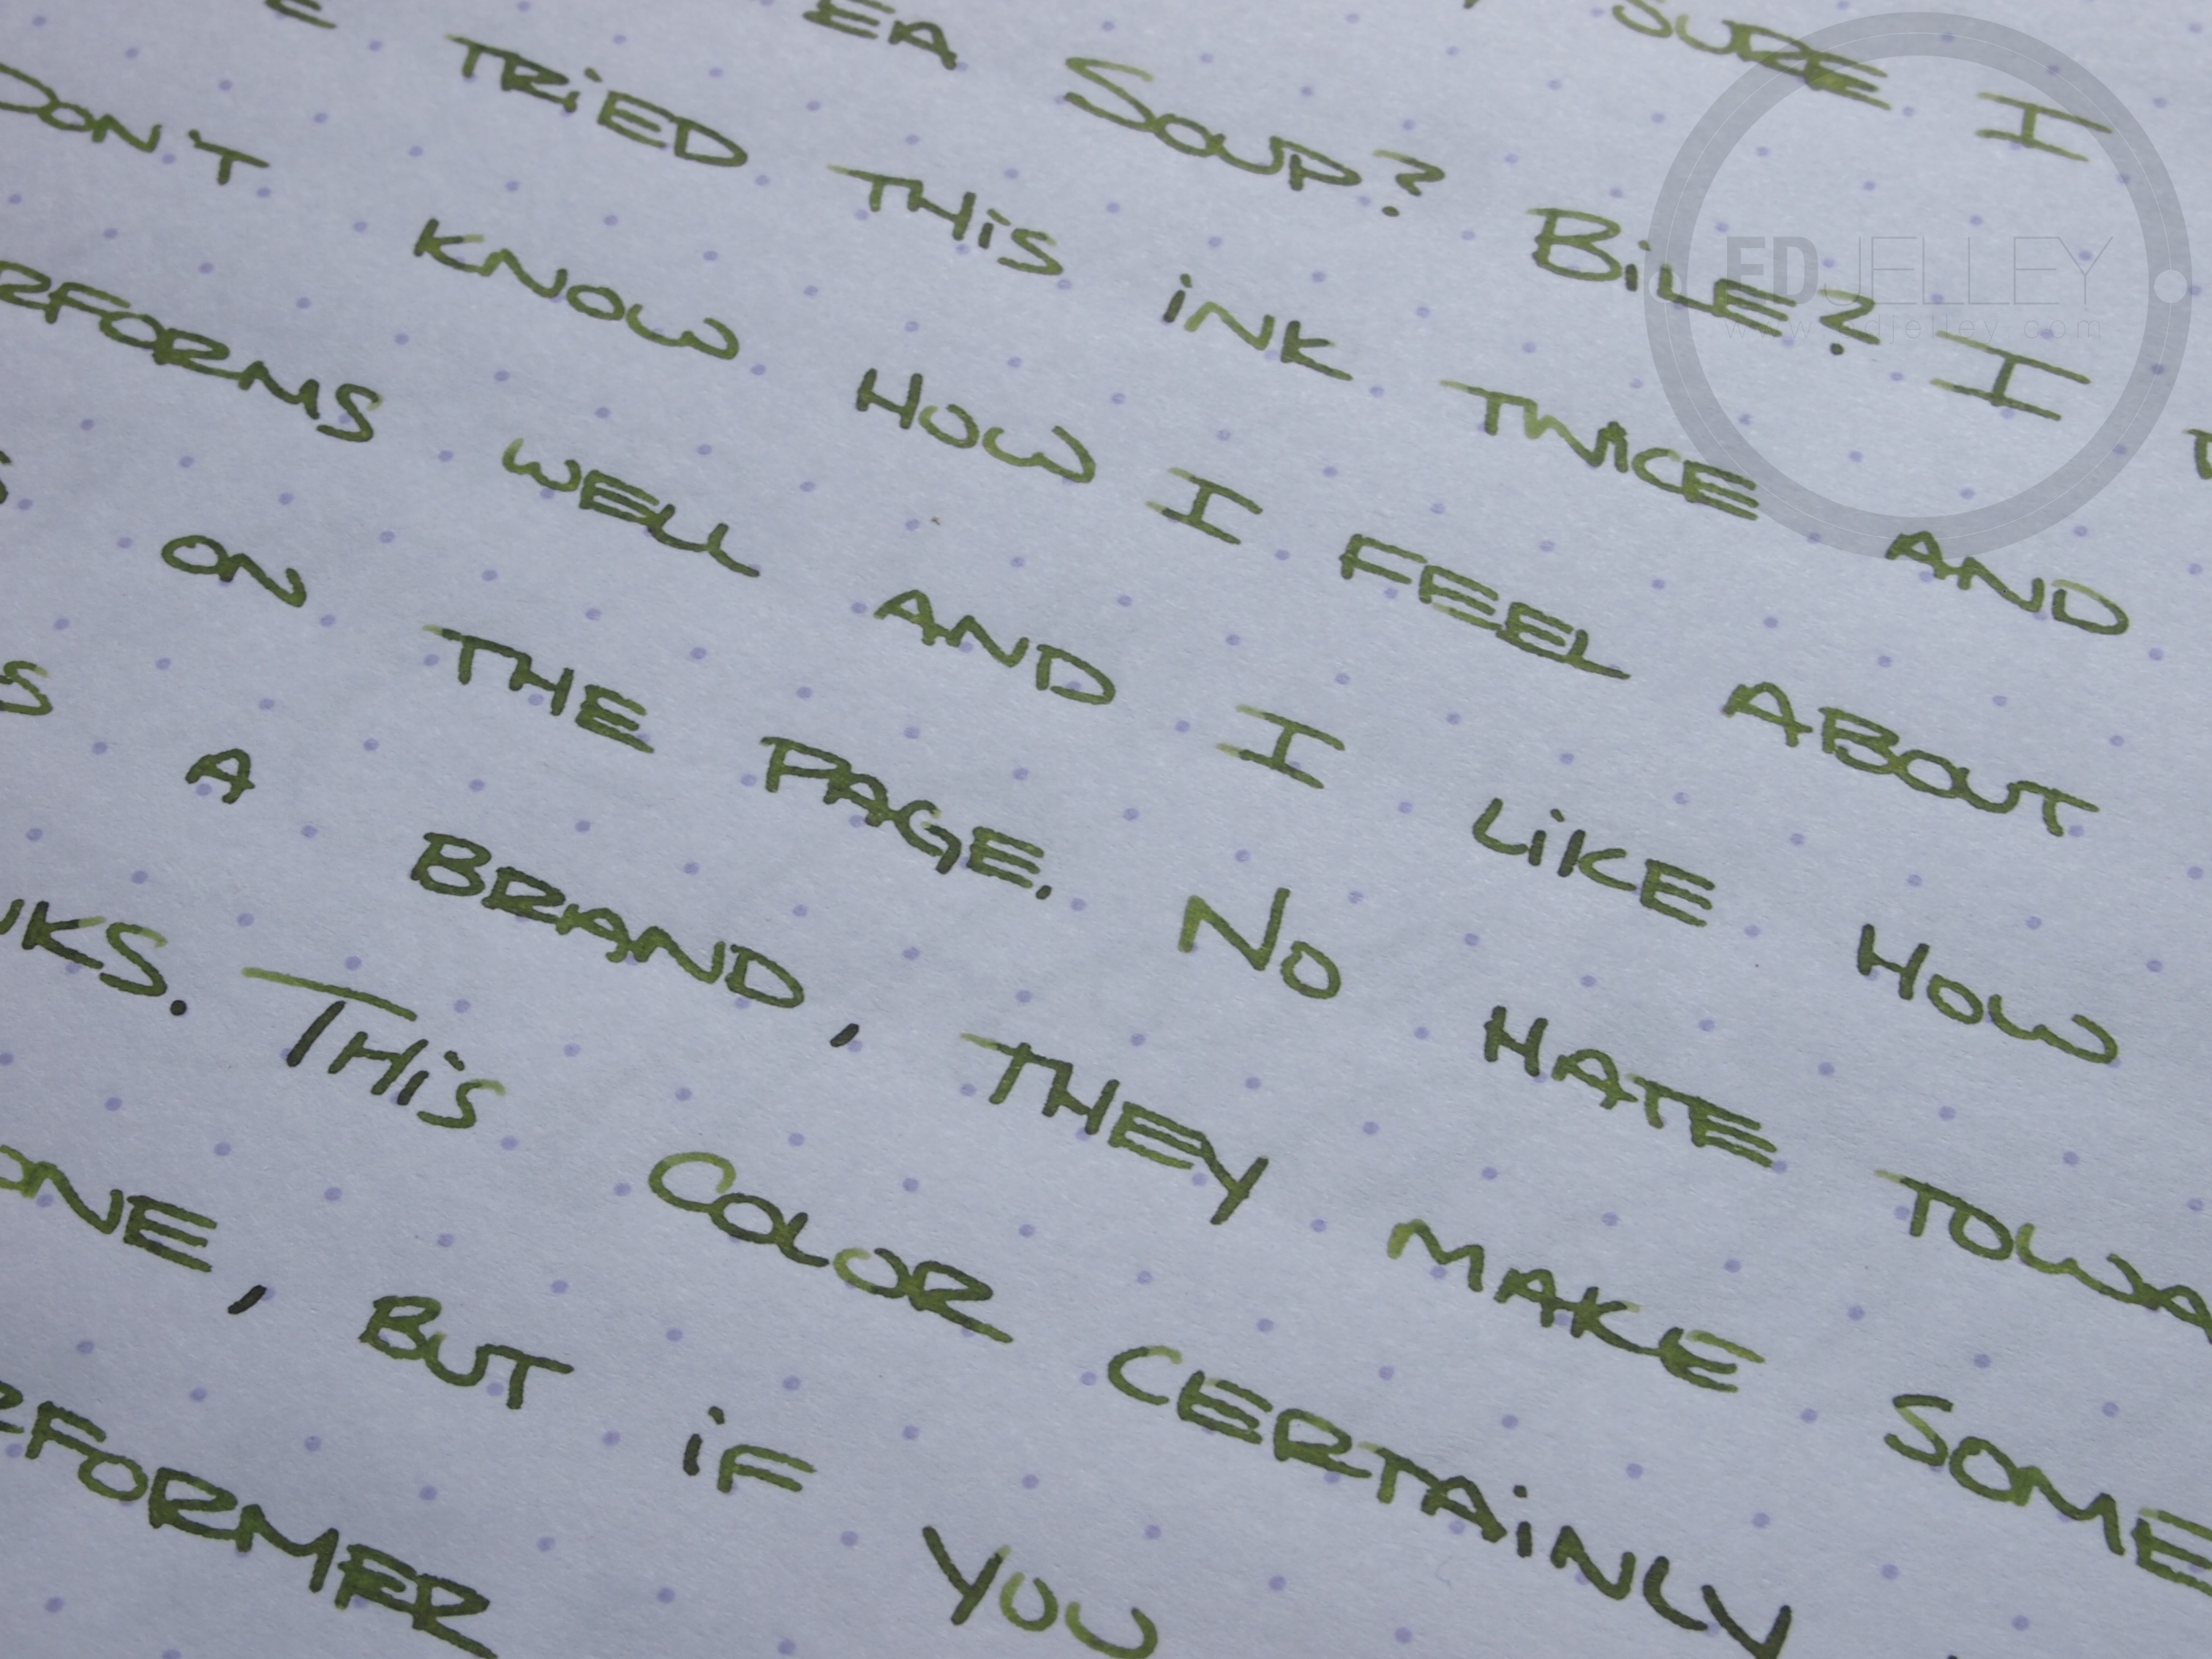 SURE I
EA SOUP? BiLE? I
E TRiED THiS iNK TWiCE AND
DON'T KNOW HOW I FEEL ABOUT
RFORMS WELL AND I LiKE HOW
S ON THE PAGE. NO HATE TOWA
S A BRAND, THEY MAKE SOME
NKS. THiS COLOR CERTAiNLY
ONE, BUT iF YOU
RFORMER
EDJELLEY
www.edjelley.com